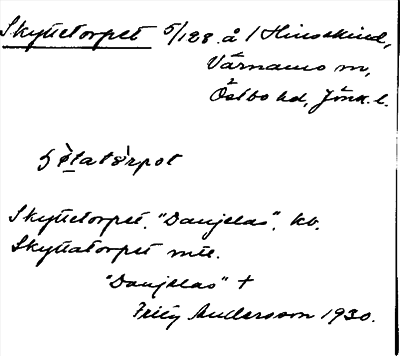 Skyttetorpet 5/128 å 1 Hinsekind,
Värnamo sn,
Östbo hd, Jönk. l.
Skyttetorpet, "Danjelas", kb.
Skyttatorpet mtl.
"Danjelas" +
Fritz Andersson 1930.